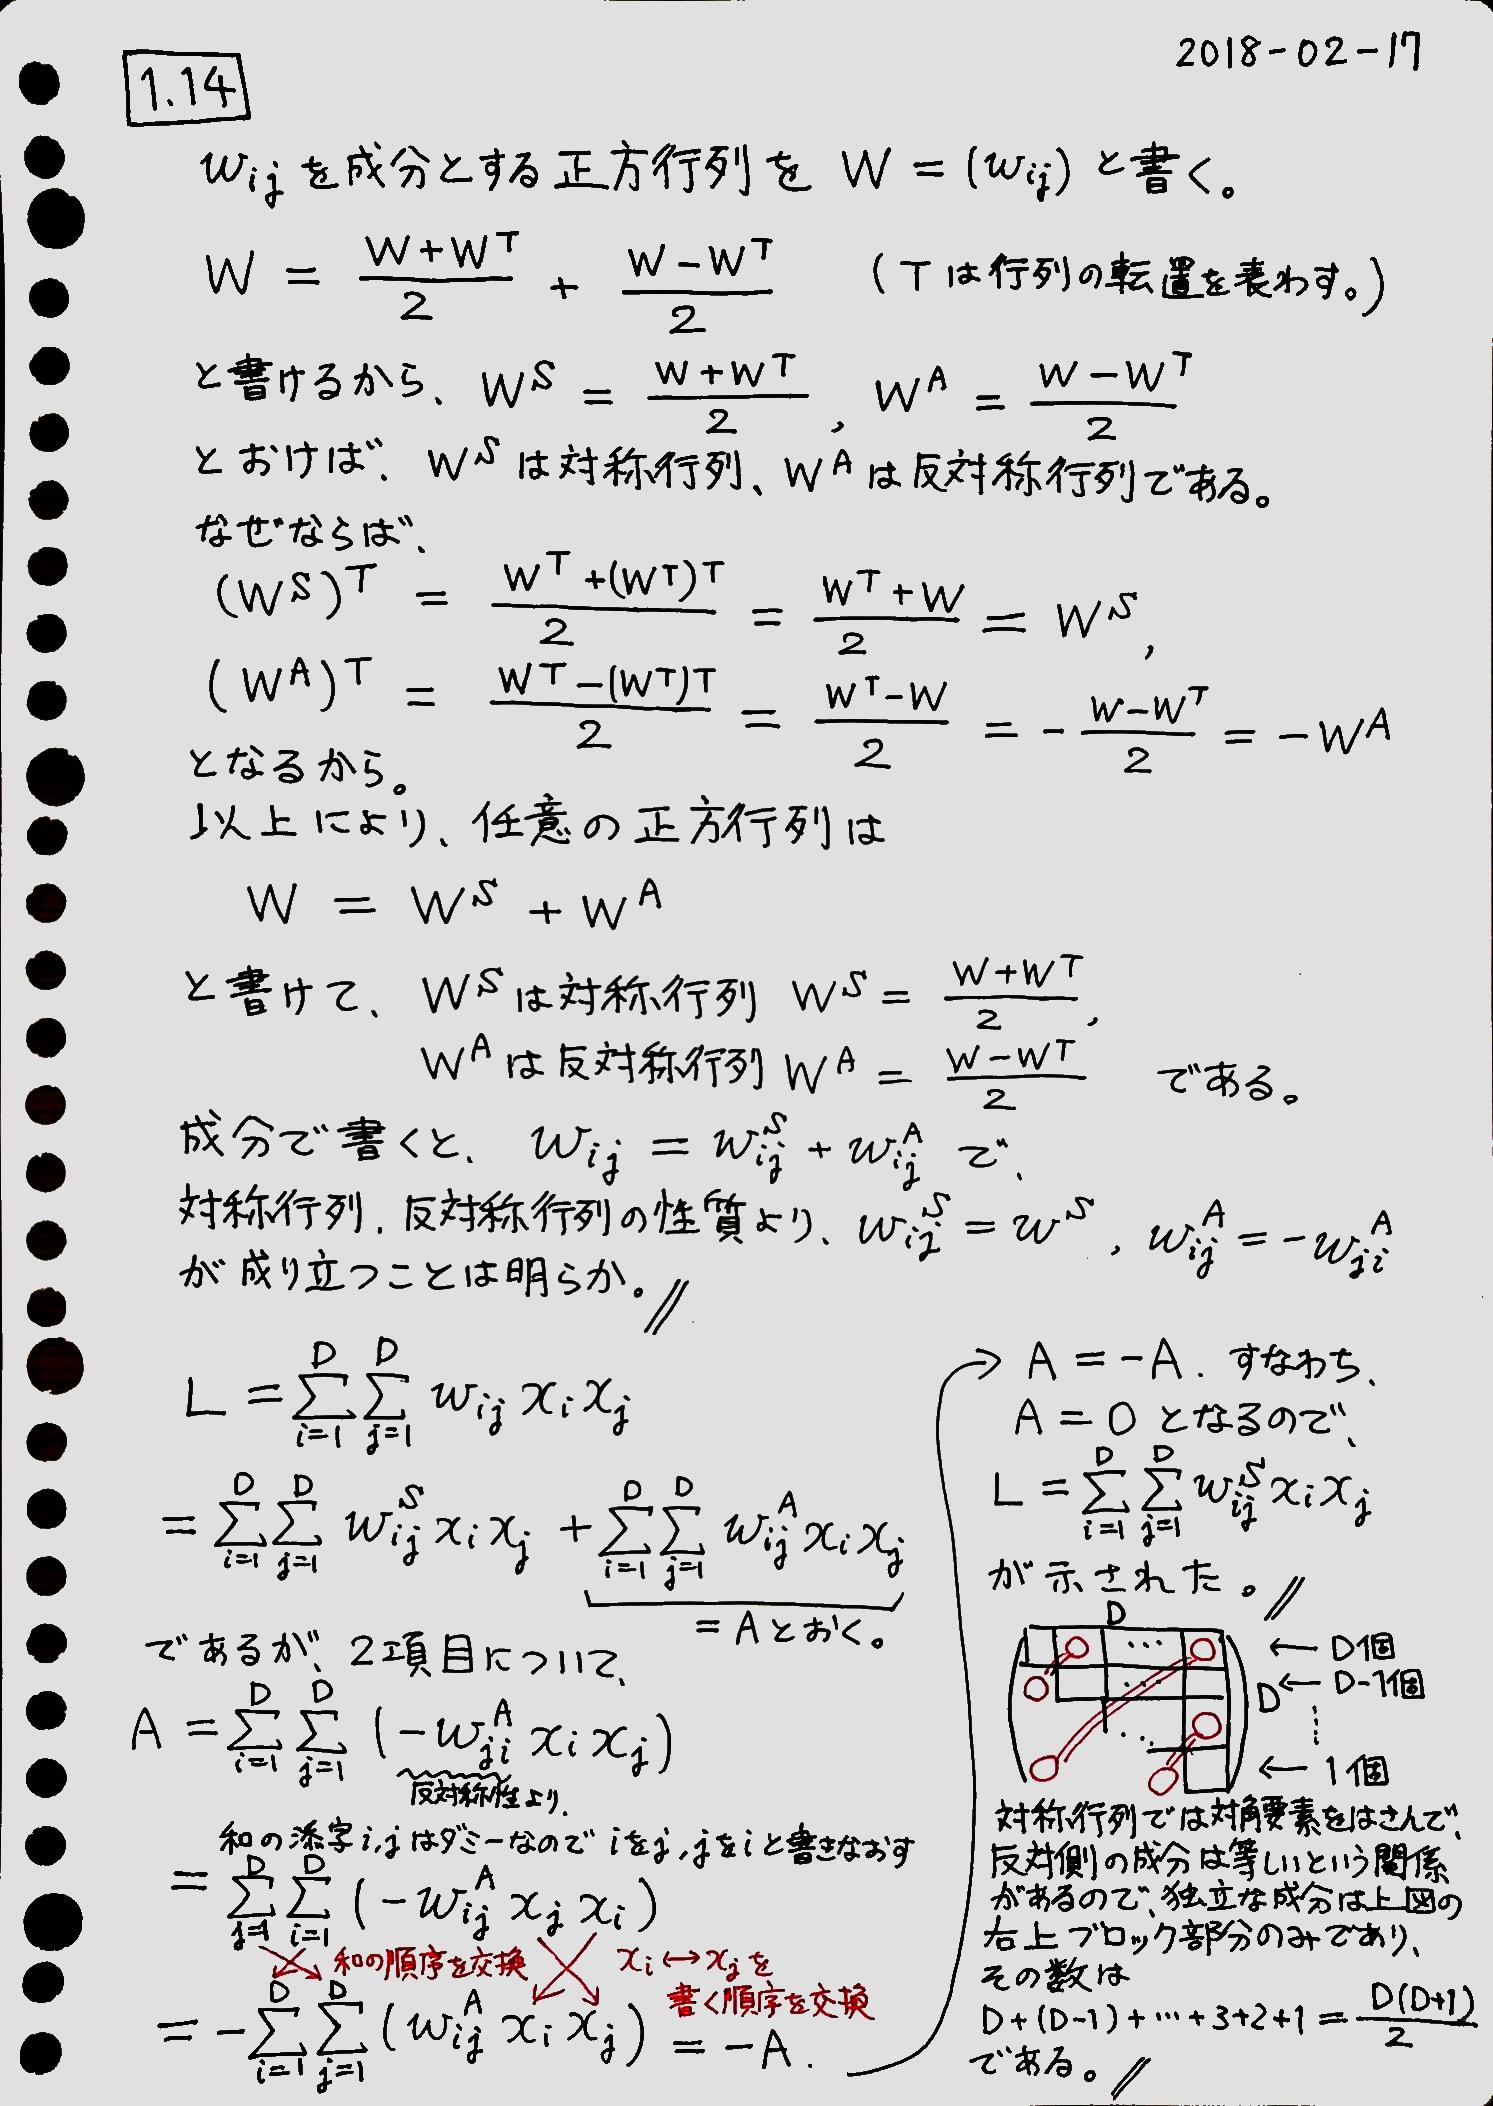 2018-02-17
1.14
w_{ij} を成分とする正方行列を W = (w_{ij}) と書く。
W = \frac{W+W^T}{2} + \frac{W-W^T}{2} (Tは行列の転置を表わす。)
と書けるから、W^S = \frac{W+W^T}{2}, W^A = \frac{W-W^T}{2}
とおけば、W^S は対称行列、W^A は反対称行列である。
なぜならば、
(W^S)^T = \frac{W^T+(W^T)^T}{2} = \frac{W^T+W}{2} = W^S,
(W^A)^T = \frac{W^T-(W^T)^T}{2} = \frac{W^T-W}{2} = -\frac{W-W^T}{2} = -W^A
となるから。
以上により、任意の正方行列は
W = W^S + W^A
と書けて、W^S は対称行列 W^S = \frac{W+W^T}{2},
W^A は反対称行列 W^A = \frac{W-W^T}{2} である。
成分で書くと、w_{ij} = w_{ij}^S + w_{ij}^A で、
対称行列、反対称行列の性質より、w_{ij}^S = w^S , w_{ij}^A = -w_{ji}^A
が成り立つことは明らか。//
L = \sum_{i=1}^{D} \sum_{j=1}^{D} w_{ij} x_i x_j
= \sum_{i=1}^{D} \sum_{j=1}^{D} w_{ij}^S x_i x_j + \sum_{i=1}^{D} \sum_{j=1}^{D} w_{ij}^A x_i x_j
= A とおく。
であるが、2項目について、
A = \sum_{i=1}^{D} \sum_{j=1}^{D} (-w_{ji}^A x_i x_j)
反対称性より。
和の添字i,jはダミーなので iをj,jをiと書きなおす
= \sum_{j=1}^{D} \sum_{i=1}^{D} (-w_{ij}^A x_j x_i)
和の順序を交換 x_i ↔ x_j を
書く順序を交換
= -\sum_{i=1}^{D} \sum_{j=1}^{D} (w_{ij}^A x_i x_j) = -A.
→ A = -A. すなわち、
A = 0 となるので、
L = \sum_{i=1}^{D} \sum_{j=1}^{D} w_{ij}^S x_i x_j
が示された。//
D
… ← D個
… D ← D-1個
⋱ ⋮
← 1個
対称行列では対角要素をはさんで、
反対側の成分は等しいという関係
があるので、独立な成分は上図の
右上ブロック部分のみであり、
その数は
D+(D-1)+…+3+2+1 = \frac{D(D+1)}{2}
である。//